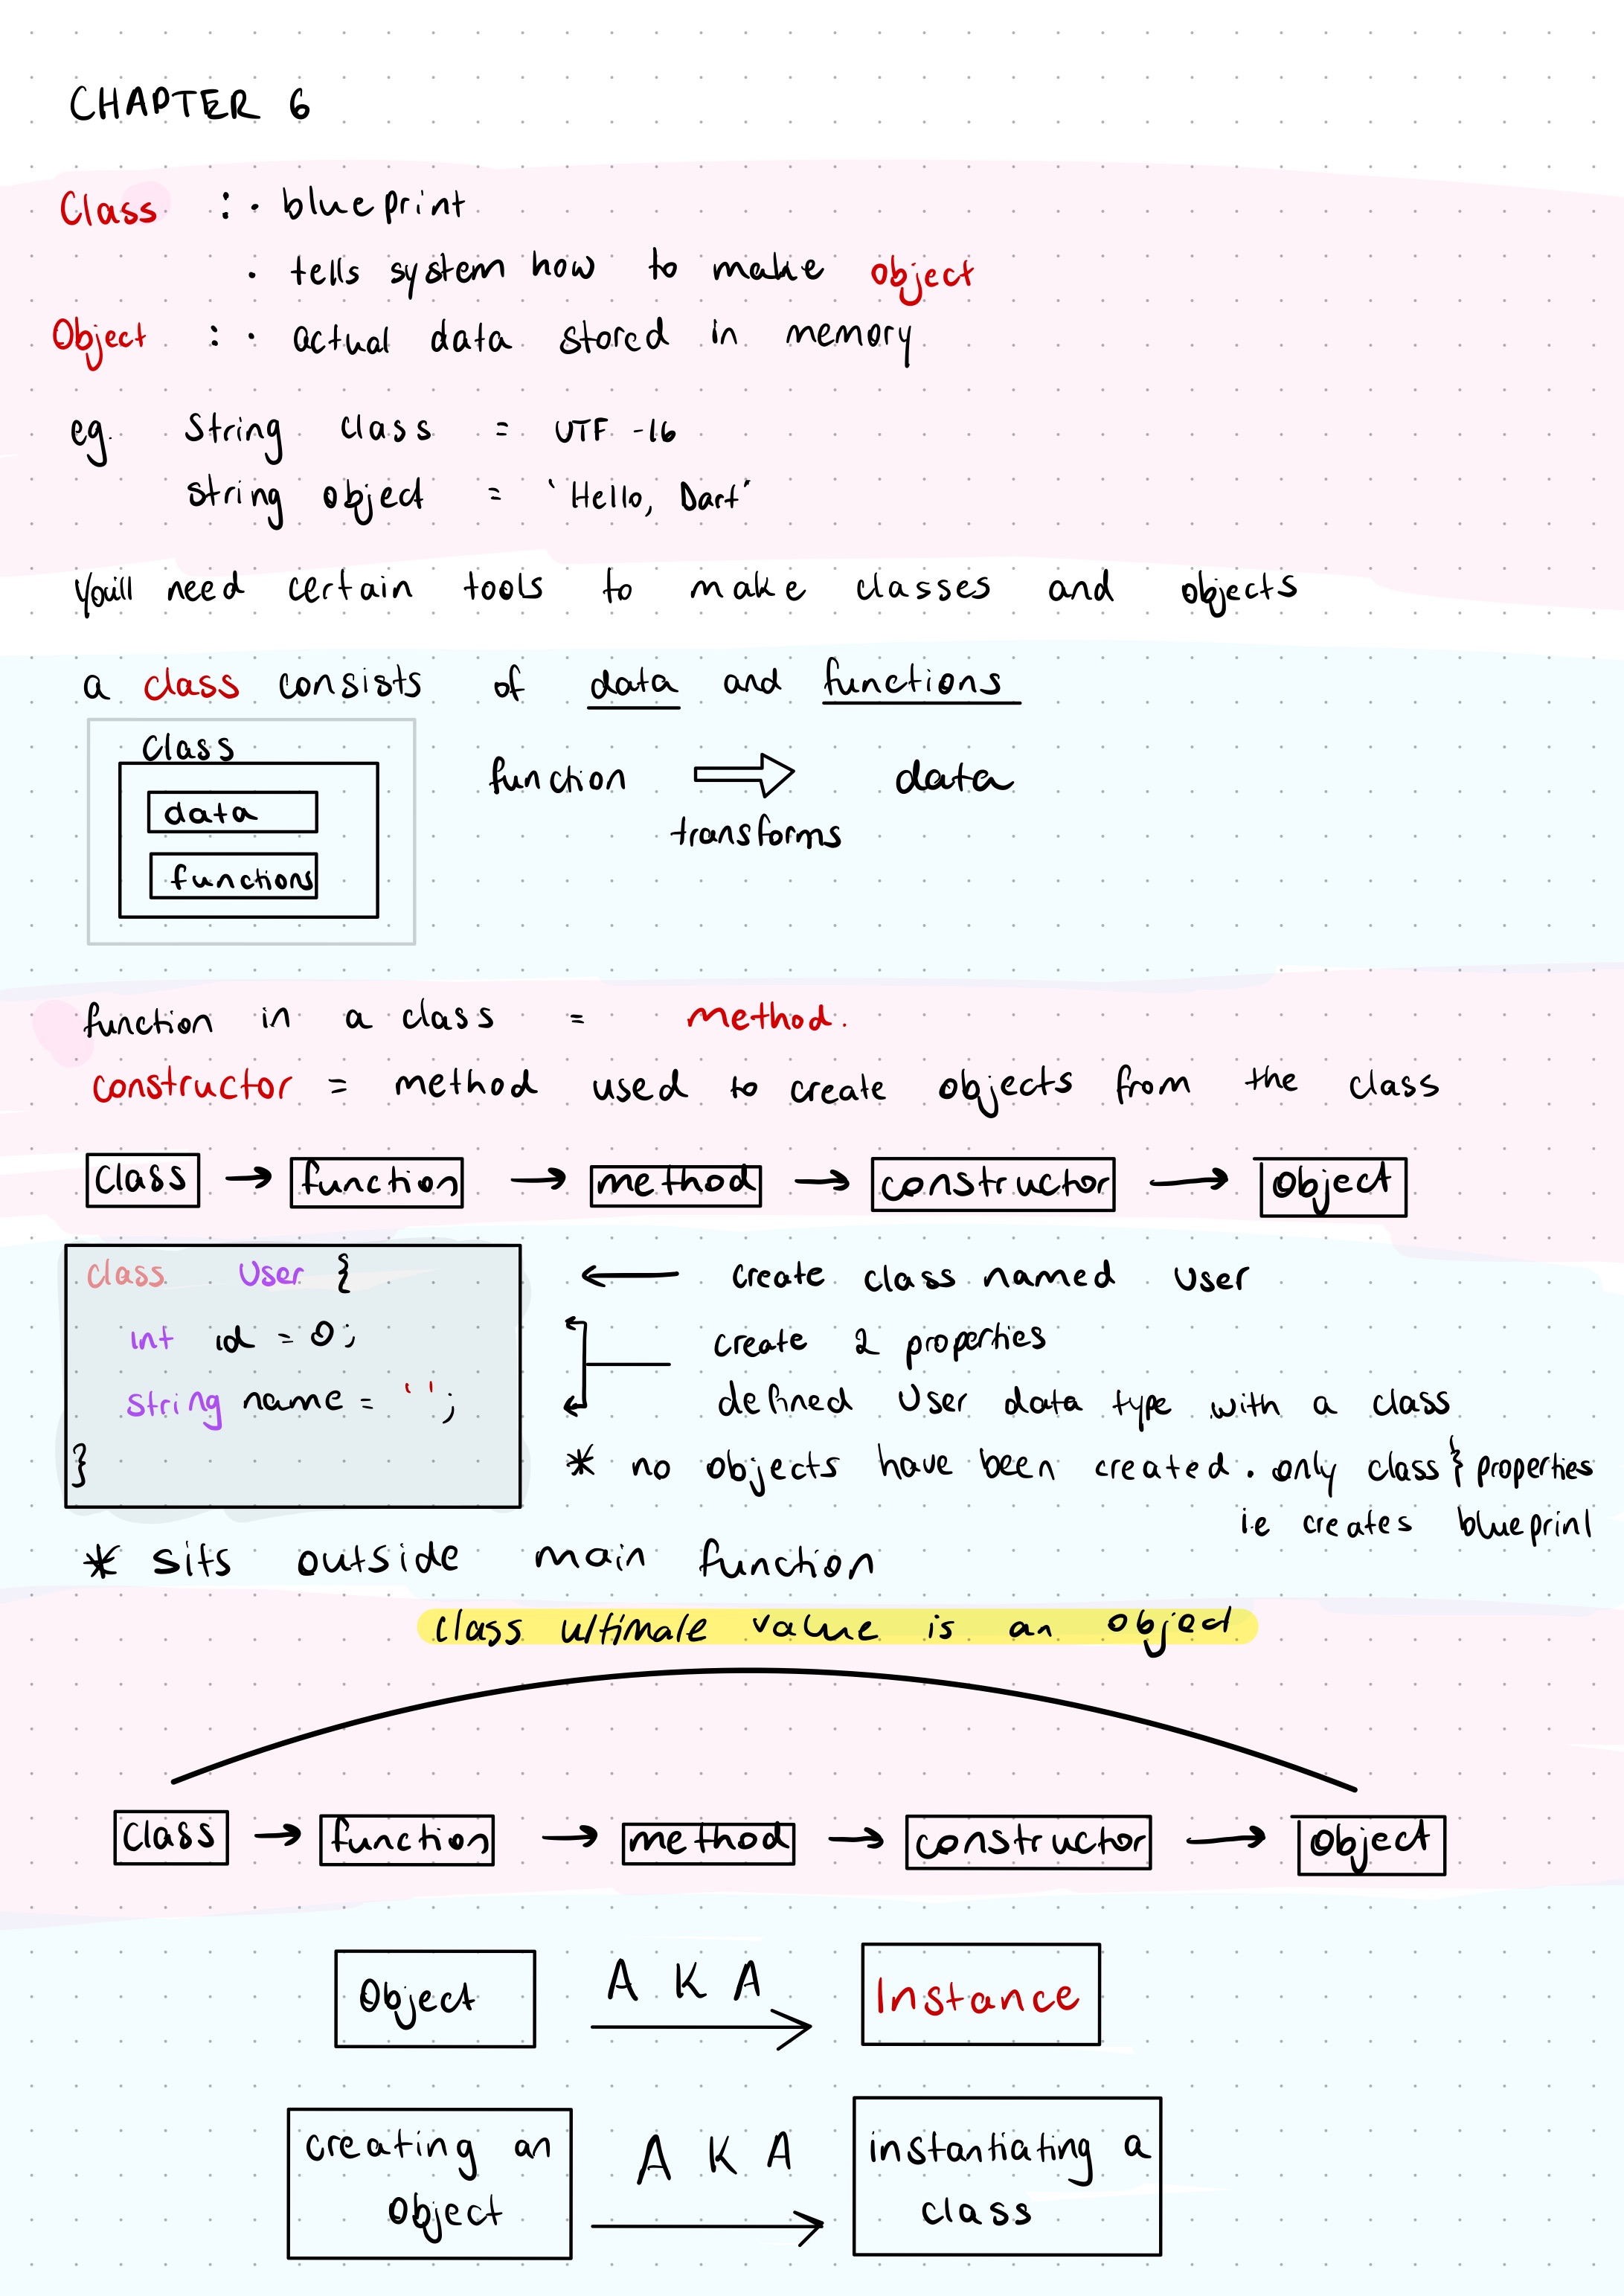 CHAPTER 6
Class : · blueprint
· tells system how to make object
Object : · actual data stored in memory
eg. String class = UTF -16
string object = 'Hello, Dart'
You'll need certain tools to make classes and objects
a class consists of data and functions
class
data
functions
function ⇒ data
transforms
function in a class = method.
constructor = method used to create objects from the class
class → function → method → constructor → object
class User {
int id = 0;
string name = '';
}
← create class named User
create 2 properties
defined User data type with a class
* no objects have been created. only class & properties
ie creates blueprint
* sits outside main function
class ultimate value is an object
class → function → method → constructor → object
Object AKA Instance
creating an object AKA instantiating a class